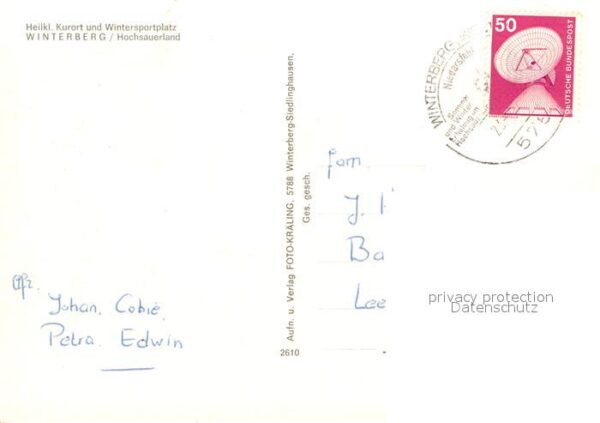 Heilkl. Kurort und Wintersportplatz
WINTERBERG / Hochsauerland
Afz.
Johan, Cobie,
Petra. Edwin
Aufn. u. Verlag FOTO-KRÄLING, 5788 Winterberg-Siedlinghausen,
Ges. gesch.
2610
fam
J.
Ba
Lee
50
DEUTSCHE BUNDESPOST
WINTERBERG
Niedersfeld
Sommer
und Winter
Hochsauer
privacy protection
Datenschutz